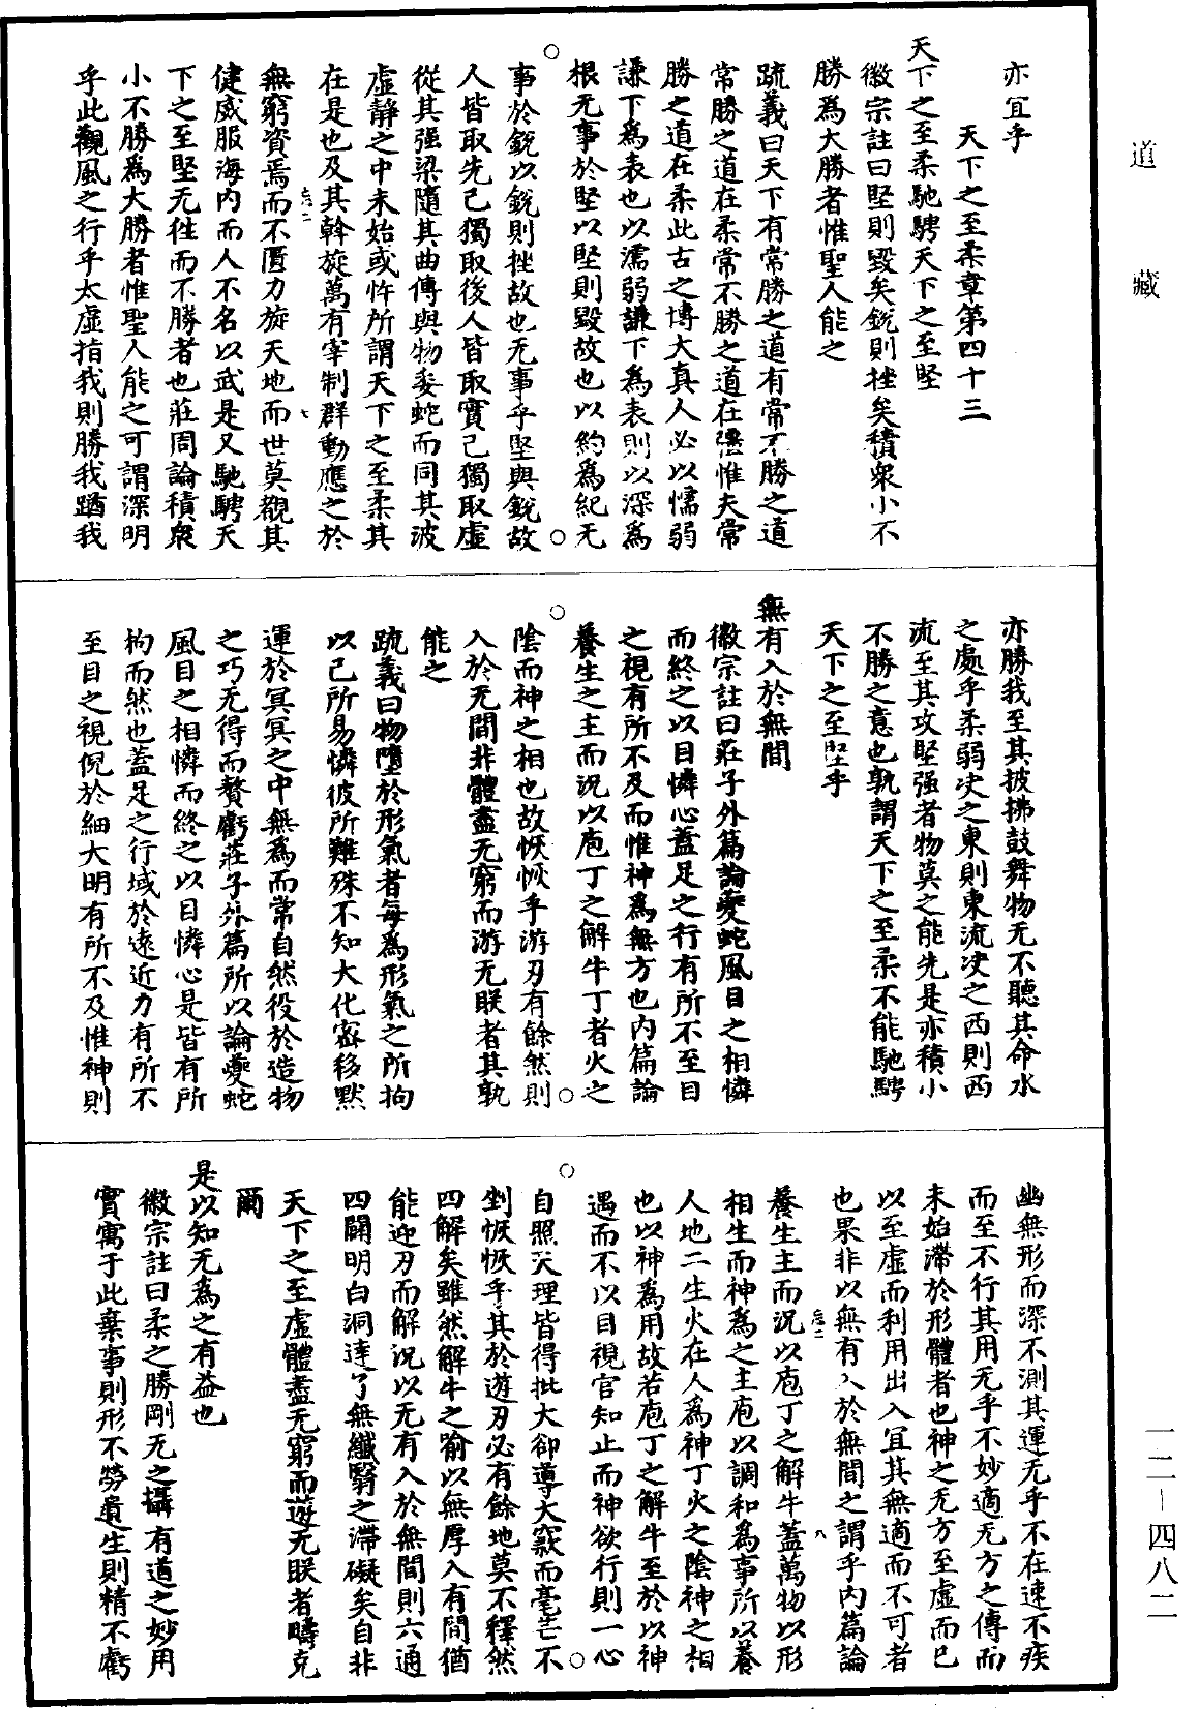 道藏
亦宜乎
天下之至柔章第四十三
天下之至柔馳騁天下之至堅
徽宗註曰堅則毀矣銳則挫矣積衆小不
勝為大勝者惟聖人能之
疏義曰天下有常勝之道有常不勝之道
常勝之道在柔常不勝之道在彊惟夫常
勝之道在柔此古之博大真人必以懦弱
謙下為表也以濡弱謙下為表則以深為
根无事於堅以堅則毀故也以約為紀无
事於銳以銳則挫故也无事乎堅與銳故
人皆取先己獨取後人皆取實己獨取虛
從其强梁隨其曲傅與物委蛇而同其波
虛靜之中未始或忤所謂天下之至柔其
在是也及其斡旋萬有宰制群動應之於
無窮資焉而不匱力旋天地而世莫覩其
健威服海内而人不名以武是又馳騁天
下之至堅无往而不勝者也莊周論積衆
小不勝為大勝者惟聖人能之可謂深明
乎此觀風之行乎太虛指我則勝我蹈我
亦勝我至其披拂鼓舞物无不聽其命水
之處乎柔弱决之東則東流决之西則西
流至其攻堅强者物莫之能先是亦積小
不勝之意也孰謂天下之至柔不能馳騁
天下之至堅乎
無有入於無間
徽宗註曰莊子外篇論夔蛇風目之相憐
而終之以目憐心蓋足之行有所不至目
之視有所不及而惟神為無方也内篇論
養生之主而況以庖丁之解牛丁者火之
陰而神之相也故恢恢乎游刃有餘然則
入於无間非體盡无窮而游无朕者其孰
能之
疏義曰物墮於形氣者每為形氣之所拘
以己所易憐彼所難殊不知大化密移默
運於冥冥之中無為而常自然役於造物
之巧无得而贅虧莊子外篇所以論夔蛇
風目之相憐而終之以目憐心是皆有所
拘而然也蓋足之行域於遠近力有所不
至目之視倪於細大明有所不及惟神則
幽無形而深不測其運无乎不在速不疾
而至不行其用无乎不妙適无方之傳而
未始滯於形體者也神之无方至虛而已
以至虛而利用出入宜其無適而不可者
也果非以無有入於無間之謂乎内篇論
養生主而況以庖丁之解牛蓋萬物以形
相生而神為之主庖以調和為事所以養
人地二生火在人為神丁火之陰神之相
也以神為用故若庖丁之解牛至於以神
遇而不以目視官知止而神欲行則一心
自照天理皆得批大卻導大窾而毫芒不
剉恢恢乎其於遊刃必有餘地莫不釋然
四解矣雖然解牛之喻以無厚入有間猶
能迎刃而解況以无有入於無間則六通
四闢明白洞達了無纖翳之滯礙矣自非
天下之至虛體盡无窮而遊无朕者疇克
爾
是以知无為之有益也
徽宗註曰柔之勝剛无之攝有道之妙用
實寓于此棄事則形不勞遺生則精不虧
一二-四八二